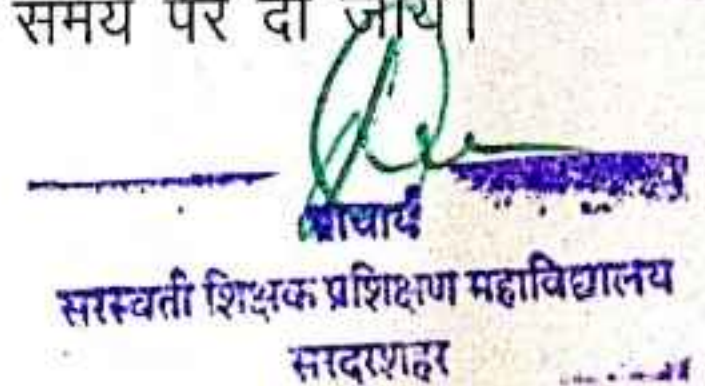 समय पर दी जाय।
प्राचार्य
सरस्वती शिक्षक प्रशिक्षण महाविद्यालय
सरदारशहर